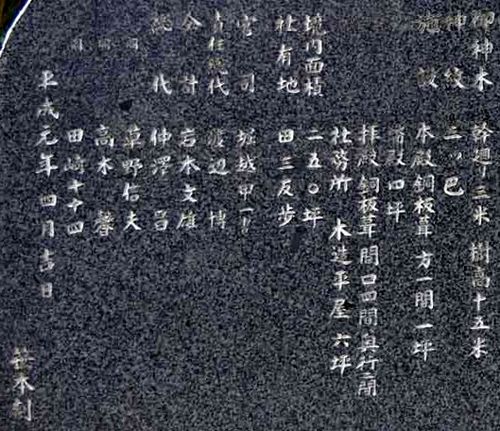 御神木 幹廻り三米 樹高十五米
神紋 三ツ巴
施設 本殿銅板葺 方一間一坪
幣殿四坪
拝殿銅板葺 間口四間奥行二間
社務所 木造平屋 六坪
境内面積 二五〇坪
社有地 田三反歩
宮司 堀越甲一
責任総代 渡辺博
会計 岩本文雄
総代 仲澤
同 草野信夫
同 高木馨
同 田崎十四
平成元年四月吉日
笹本刻